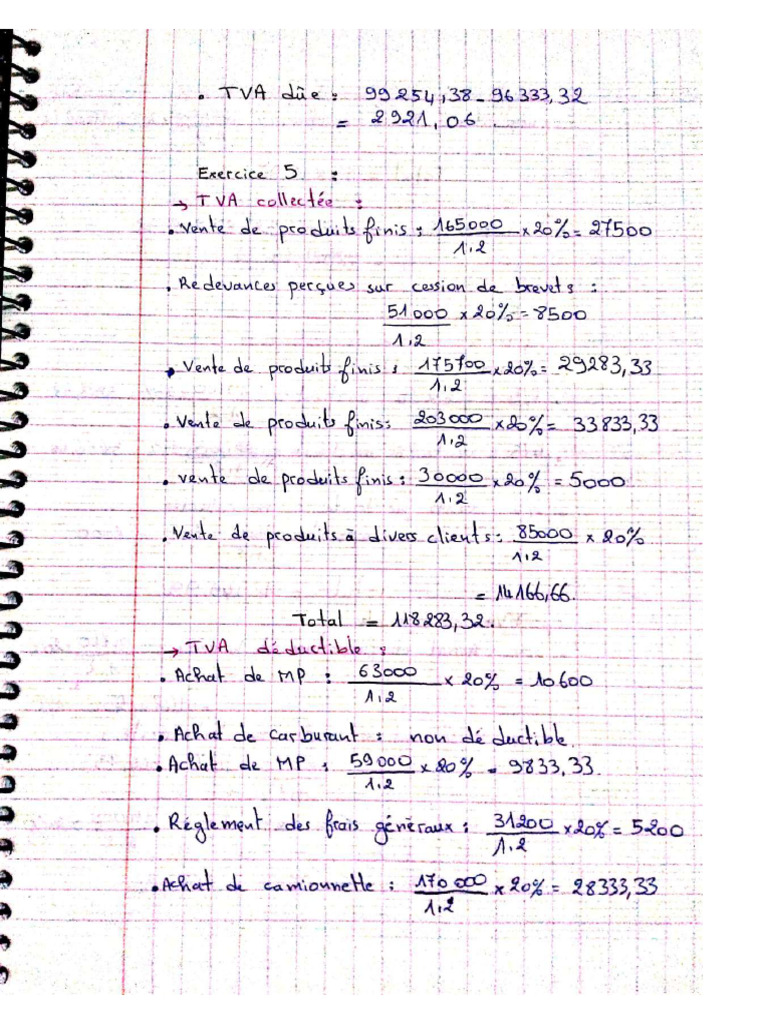 . TVA dûe : 99254,38 - 96333,32
= 2921,06.
Exercice 5 :
→ TVA collectée :
. Vente de produits finis : 165000/1.2 x 20% = 27500
. Redevances perçues sur cession de brevets :
51000/1.2 x 20% = 8500
. Vente de produits finis : 175700/1.2 x 20% = 29283,33
. Vente de produits finis : 203000/1.2 x 20% = 33833,33
. vente de produits finis : 30000/1.2 x 20% = 5000
. Vente de produits à divers clients : 85000/1.2 x 20%
= 14166,66.
Total = 118283,32.
→ TVA déductible :
. Achat de MP : 63000/1.2 x 20% = 10600
. Achat de carburant : non déductible.
. Achat de MP : 59000/1.2 x 20% = 9833,33
. Réglement des frais généraux : 31200/1.2 x 20% = 5200
. Achat de camionnette : 170000/1.2 x 20% = 28333,33